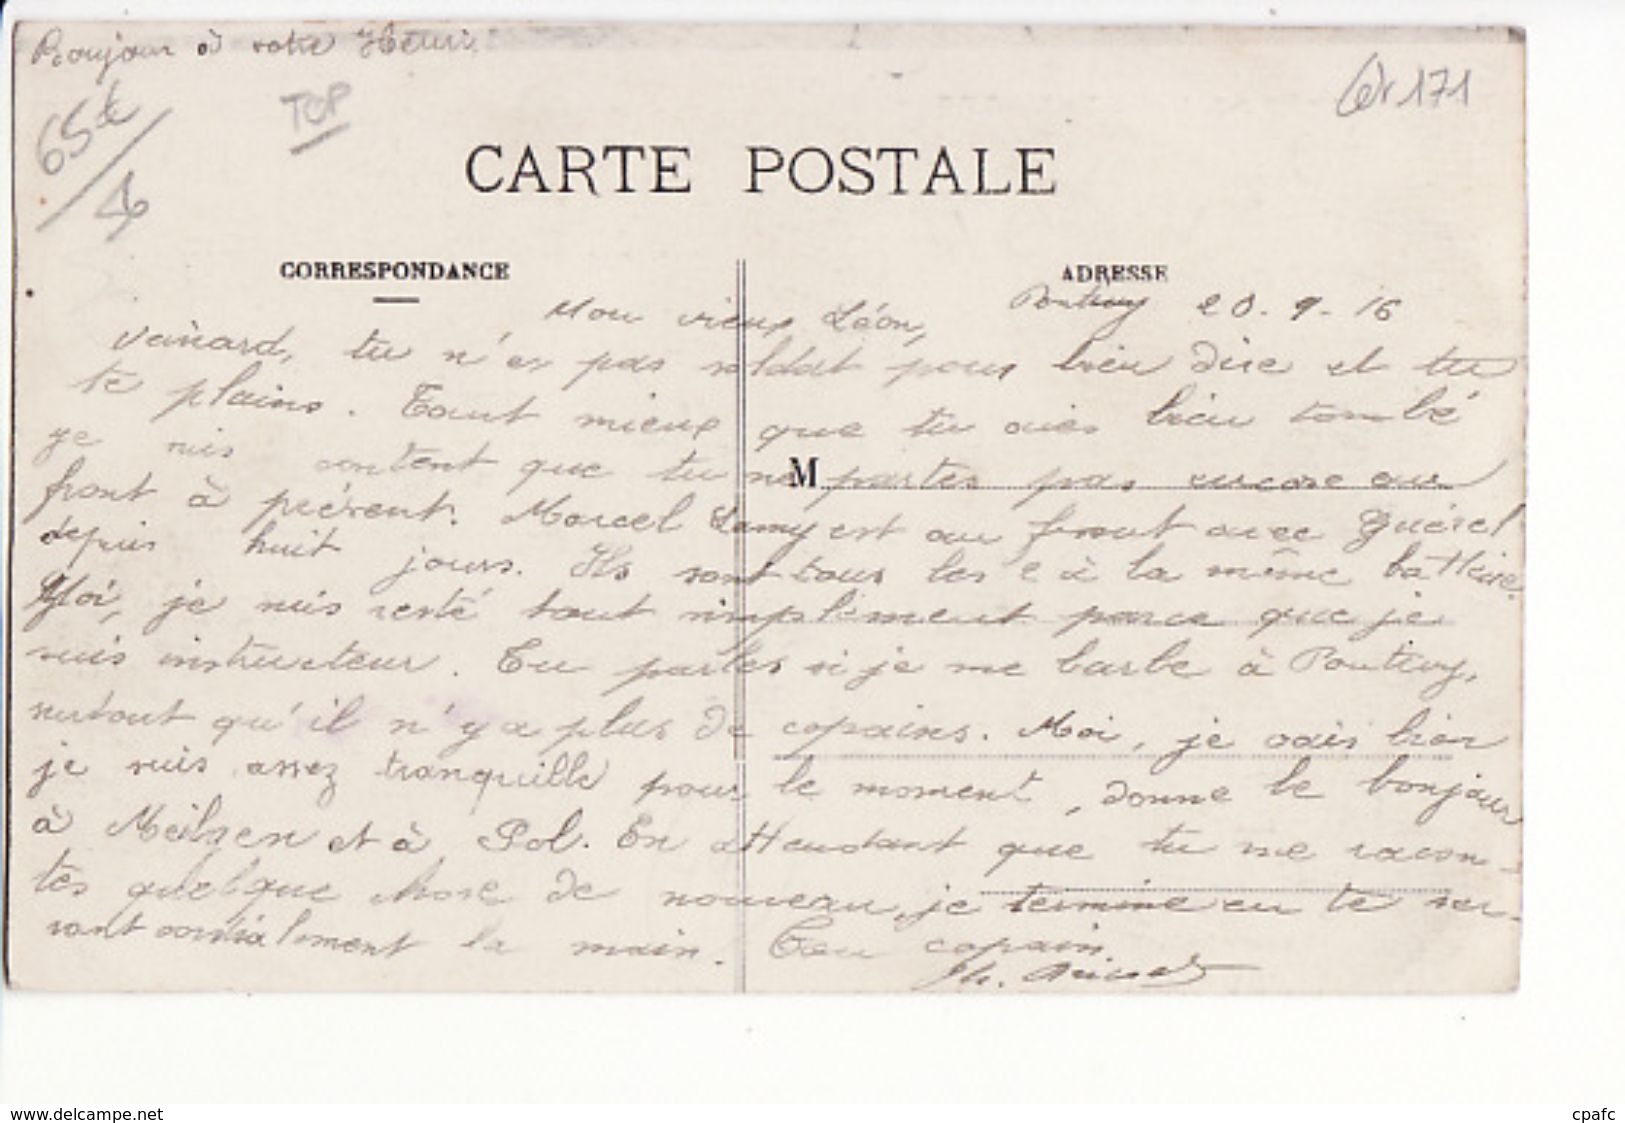 Bonjour à votre Henri.
65 £
4
TOP
171
CARTE POSTALE
CORRESPONDANCE
ADRESSE
Pontivy 20.9.16
Mon vieux Léon,
Veinard, tu n'es pas soldat pour bien dire et tu
te plains. Tant mieux que tu aies bien tombé
je suis content que tu ne partes pas encore au
M
front à présent. Marcel Lamy est au front avec Guérel
depuis huit jours. Ils sont tous les 2 à la même batterie.
Moi, je suis resté tout simplement parce que je
suis instructeur. Tu parles si je me barbe à Pontivy,
surtout qu'il n'y a plus de copains. Moi, je vais bien
je suis assez tranquille pour le moment, donne le bonjour
à et à Pol. En attendant que tu me racon-
tes quelque chose de nouveau, je termine en te ser-
rant cordialement la main. Ton copain
www.delcampe.net
cpafc